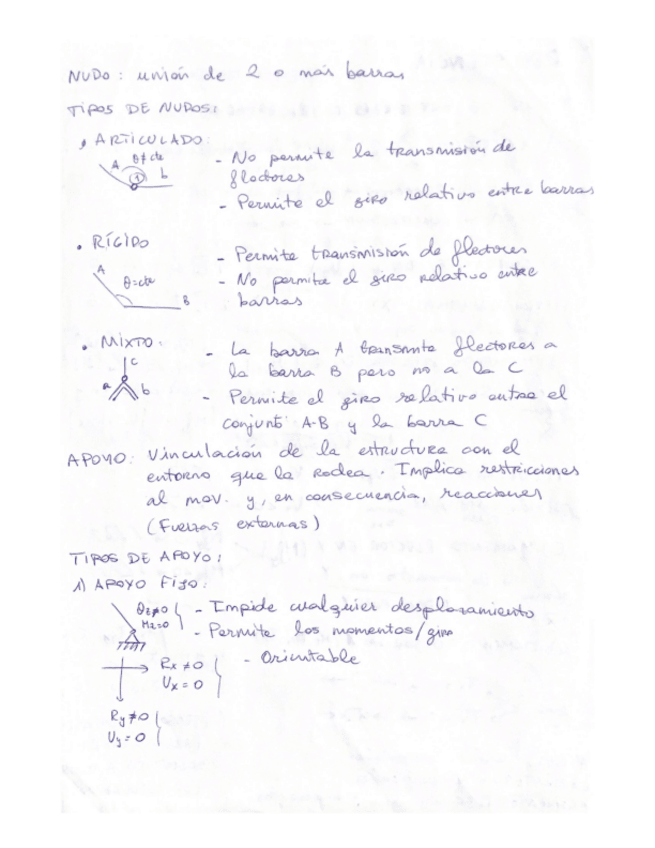 NUDO: unión de 2 o más barras
TIPOS DE NUDOS:
• ARTICULADO:
A θ≠cte 1 b
- No permite la transmisión de
flectores
- Permite el giro relativo entre barras
• RÍGIDO
A θ=cte B
- Permite transmisión de flectores
- No permite el giro relativo entre
barras
• MIXTO.
c
a b
- La barra A transmite flectores a
la barra B pero no a la C
- Permite el giro relativo entre el
conjunt A-B y la barra C
APOYO: Vinculación de la estructura con el
entorno que la rodea. Implica restricciones
al mov. y, en consecuencia, reacciones
(Fuerzas externas)
TIPOS DE APOYO:
1) APOYO FIJO:
θz≠0
Mz=0
- Impide cualquier desplazamiento
- Permite los momentos/giro
- Orientable
Rx ≠0
Ux = 0
Ry≠0
Uy=0